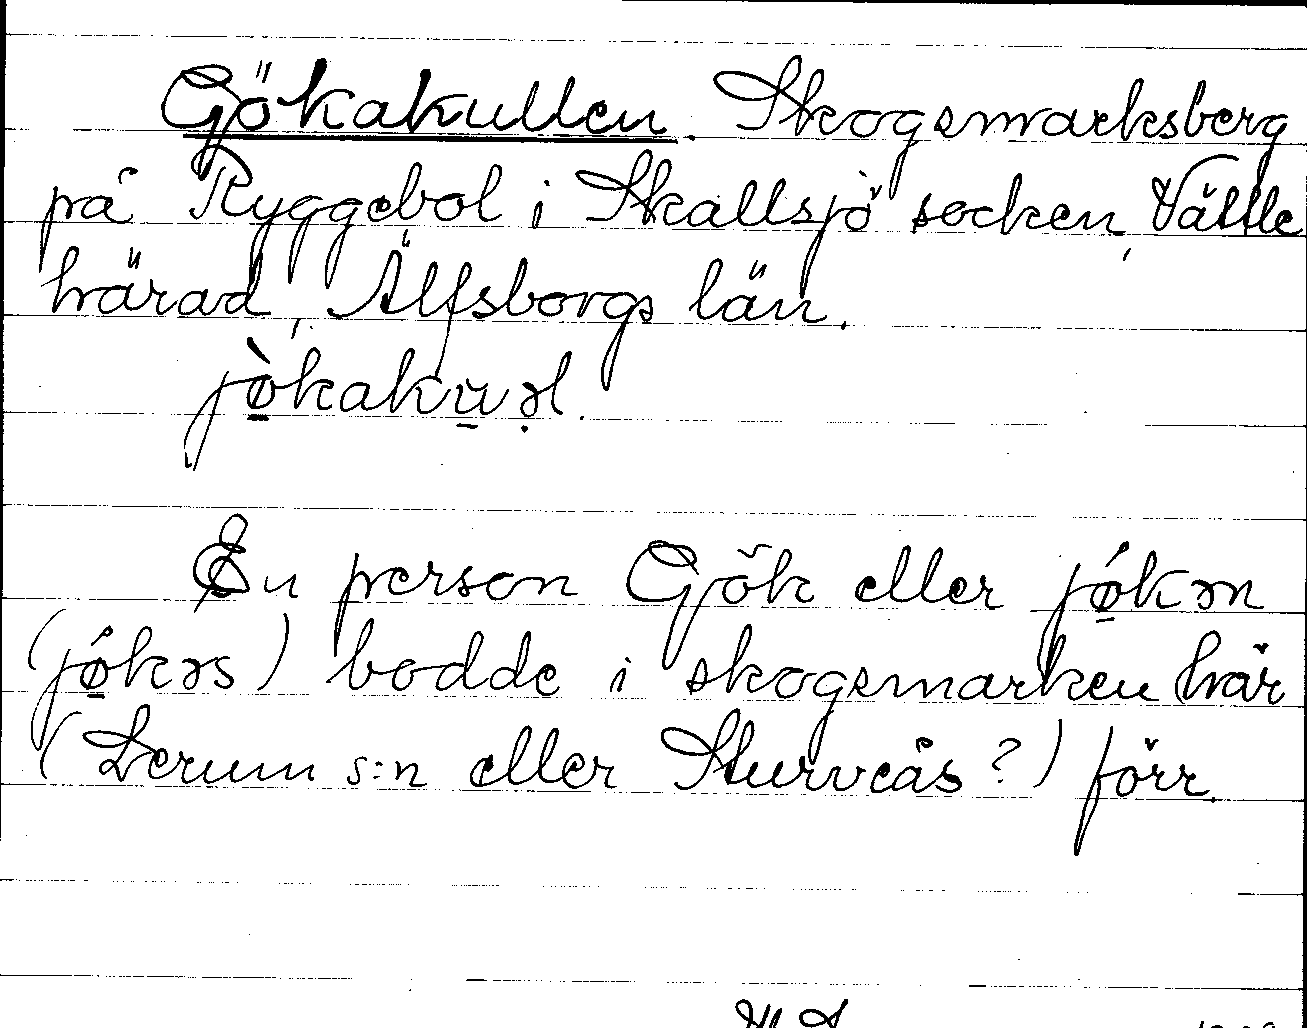 Gökakullen. Skogsmarksberg
på Ryggebol i Skallsjö socken, Vättle
härad, Älfsborgs län.
jø̀kakuəl.
En person Gök eller jǿkən
(jǿkəs) bodde i skogsmarken här
(Lerum s:n eller Sturveås?) förr.